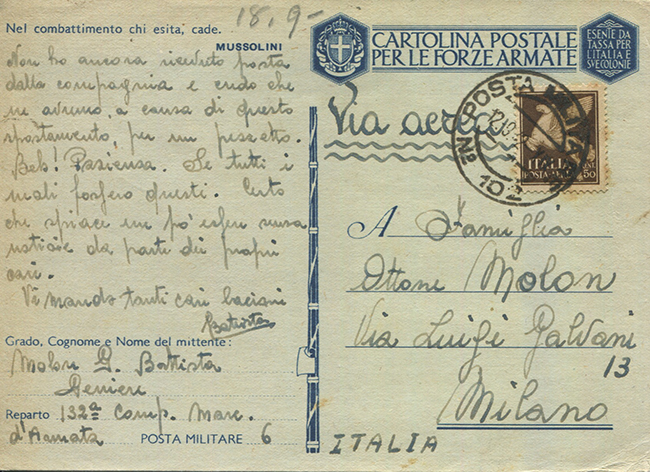 18.9-
Nel combattimento chi esita, cade.
MUSSOLINI
Non ho ancora ricevuto posta
dalla compagnia e credo che
ne avremo, a causa di questo
spostamento, per un pezzetto.
Beh! Pazienza. Se tutti i
mali fossero questi. Certo
che spiace un po' esser senza
notizie da parte dei propri
cari.
Vi mando tanti cari bacioni
Battista
Grado, Cognome e Nome del mittente:
Molon G. Battista
Geniere
Reparto 132ª Comp. Mare.
d'Armata POSTA MILITARE 6
CARTOLINA POSTALE
PER LE FORZE ARMATE
ESENTE DA
TASSA PER
L'ITALIA E
SVE COLONIE
Via aerea
POSTA MILITARE
Nº 102
ITALIA
50
A Famiglia
Ottone Molon
Via Luigi Galvani
13
Milano
ITALIA